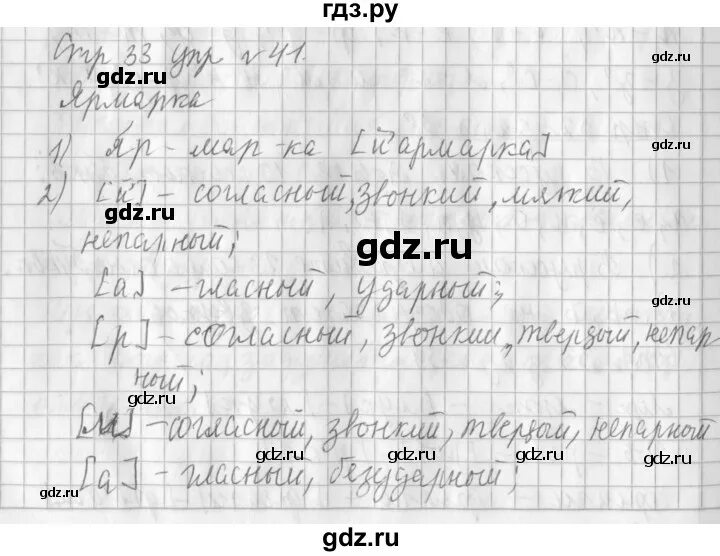 гдз.ру
Стр 33 упр №41.
gdz.ru
gdz.ru
Ярмарка
gdz.ru
gdz.ru
1) Яр-мар-ка [й'армарка]
2) [й'] - согласный, звонкий, мягкий,
gdz.ru
gdz.ru
непарный;
gdz.ru
[а] - гласный, ударный;
gdz.ru
[р] - согласный, звонкий, твердый, непар-
gdz.ru
ный;
gdz.ru
[м] - согласный, звонкий, твердый, непарный
gdz.ru
gdz.ru
[а] - гласный, безударный;
gdz.ru
gdz.ru
gdz.ru
gdz.ru